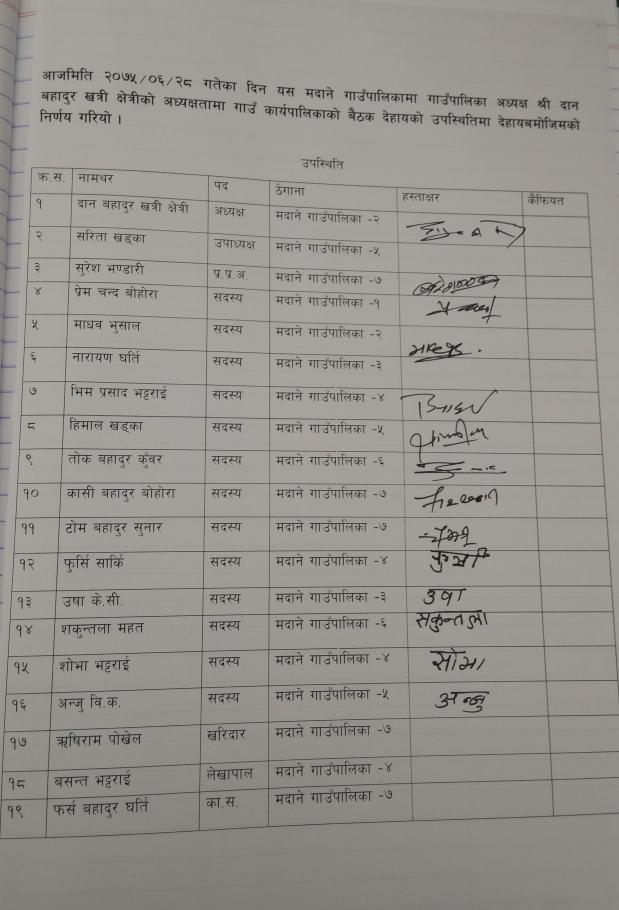 आजमिति २०७५/०६/२८ गतेका दिन यस मदाने गाउँपालिकामा गाउँपालिका अध्यक्ष श्री दान
बहादुर खत्री क्षेत्रीको अध्यक्षतामा गाउँ कार्यपालिकाको बैठक देहायको उपस्थितिमा देहायबमोजिमको
निर्णय गरियो ।
उपस्थिति
क्र.स. नामथर पद ठेगाना हस्ताक्षर कैफियत
१ दान बहादुर खत्री क्षेत्री अध्यक्ष मदाने गाउँपालिका -२
२ सरिता खड्का उपाध्यक्ष मदाने गाउँपालिका -५
३ सुरेश भण्डारी प्र.प्र.अ. मदाने गाउँपालिका -७
४ प्रेम चन्द बोहोरा सदस्य मदाने गाउँपालिका -१
५ माधव भुसाल सदस्य मदाने गाउँपालिका -२
६ नारायण घर्ति सदस्य मदाने गाउँपालिका -३
७ भिम प्रसाद भट्टराई सदस्य मदाने गाउँपालिका -४
८ हिमाल खड्का सदस्य मदाने गाउँपालिका -५
९ तोक बहादुर कुँवर सदस्य मदाने गाउँपालिका -६
१० कासी बहादुर बोहोरा सदस्य मदाने गाउँपालिका -७
११ टोम बहादुर सुनार सदस्य मदाने गाउँपालिका -७
१२ फुर्सि सार्कि सदस्य मदाने गाउँपालिका -४
१३ उषा के.सी. सदस्य मदाने गाउँपालिका -३ उषा
१४ शकुन्तला महत सदस्य मदाने गाउँपालिका -६ सकुन्तला
१५ शोभा भट्टराई सदस्य मदाने गाउँपालिका -४ सोभा
१६ अन्जु वि.क. सदस्य मदाने गाउँपालिका -५ अन्जु
१७ ऋषिराम पोखेल खरिदार मदाने गाउँपालिका -७
१८ बसन्त भट्टराई लेखापाल मदाने गाउँपालिका -४
१९ फर्स बहादुर घर्ति का.स. मदाने गाउँपालिका -७